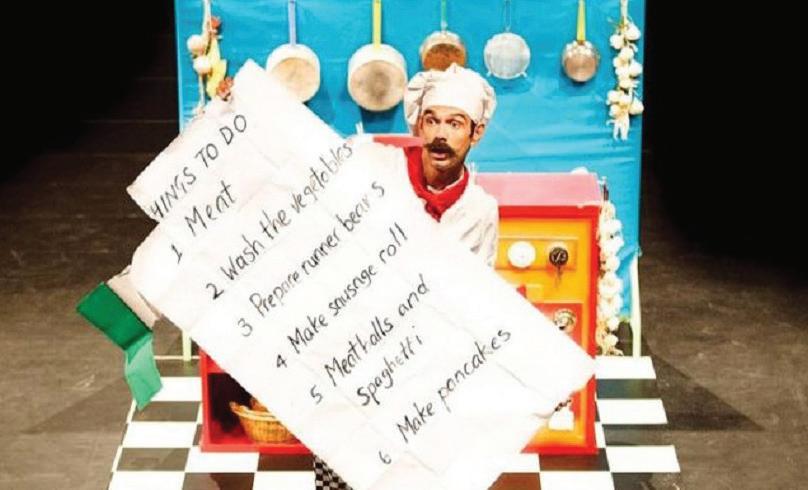 HINGS TO DO
1 Meat
2 Wash the vegetables
3 Prepare runner beans
4 Make sausage roll
5 Meatballs and
Spaghetti
6 Make pancakes